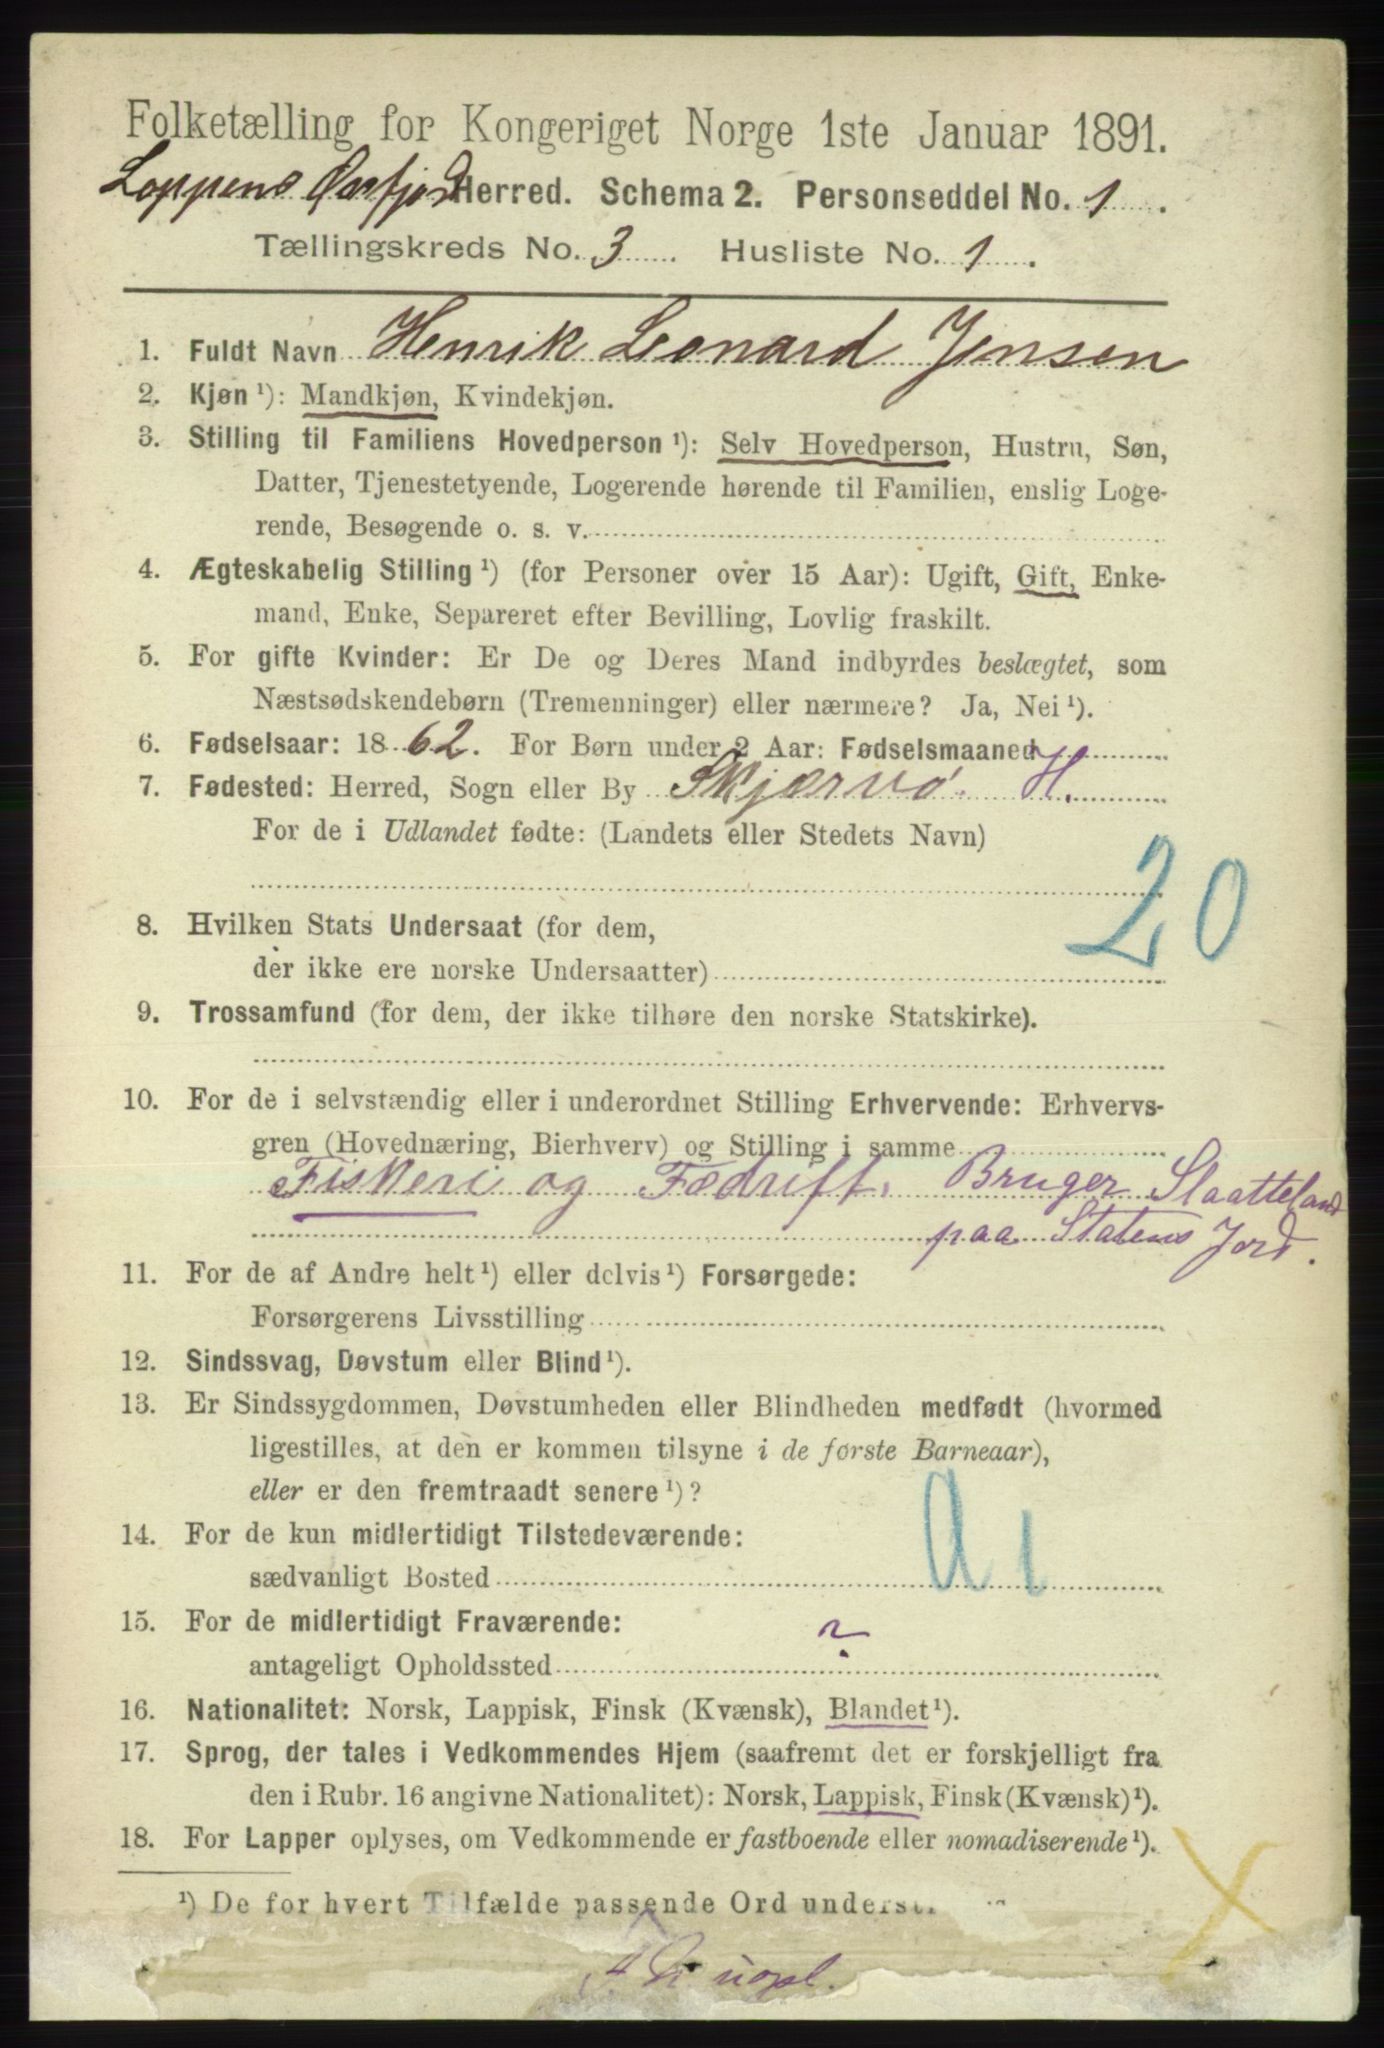 Folketælling for Kongeriget Norge 1ste Januar 1891.
Loppens Øxfjord Herred. Schema 2. Personseddel No. 1.
Tællingskreds No. 3. Husliste No. 1.
1. Fuldt Navn Henrik Leonard Jensen
2. Kjøn ¹): Mandkjøn, Kvindekjøn.
3. Stilling til Familiens Hovedperson ¹): Selv Hovedperson, Hustru, Søn,
Datter, Tjenestetyende, Logerende hørende til Familien, enslig Loge-
rende, Besøgende o. s. v.
4. Ægteskabelig Stilling ¹) (for Personer over 15 Aar): Ugift, Gift, Enke-
mand, Enke, Separeret efter Bevilling, Lovlig fraskilt.
5. For gifte Kvinder: Er De og Deres Mand indbyrdes beslægtet, som
Næstsødskendebørn (Tremenninger) eller nærmere? Ja, Nei ¹).
6. Fødselsaar: 1862. For Børn under 2 Aar: Fødselsmaaned
7. Fødested: Herred, Sogn eller By Skjærvø. H.
For de i Udlandet fødte: (Landets eller Stedets Navn)
20
8. Hvilken Stats Undersaat (for dem,
der ikke ere norske Undersaatter)
9. Trossamfund (for dem, der ikke tilhøre den norske Statskirke).
10. For de i selvstændig eller i underordnet Stilling Erhvervende: Erhvervs-
gren (Hovednæring, Bierhverv) og Stilling i samme
Fiskeri og Fædrift. Bruger Slaatteland
paa Statens Jord.
11. For de af Andre helt ¹) eller delvis ¹) Forsørgede:
Forsørgerens Livsstilling
12. Sindssvag, Døvstum eller Blind ¹).
13. Er Sindssygdommen, Døvstumheden eller Blindheden medfødt (hvormed
ligestilles, at den er kommen tilsyne i de første Barneaar),
eller er den fremtraadt senere ¹)?
14. For de kun midlertidigt Tilstedeværende:
sædvanligt Bosted
15. For de midlertidigt Fraværende: ?
antageligt Opholdssted
16. Nationalitet: Norsk, Lappisk, Finsk (Kvænsk), Blandet ¹).
17. Sprog, der tales i Vedkommendes Hjem (saafremt det er forskjelligt fra
den i Rubr. 16 angivne Nationalitet): Norsk, Lappisk, Finsk (Kvænsk) ¹).
18. For Lapper oplyses, om Vedkommende er fastboende eller nomadiserende ¹).
X
¹) De for hvert Tilfælde passende Ord underst